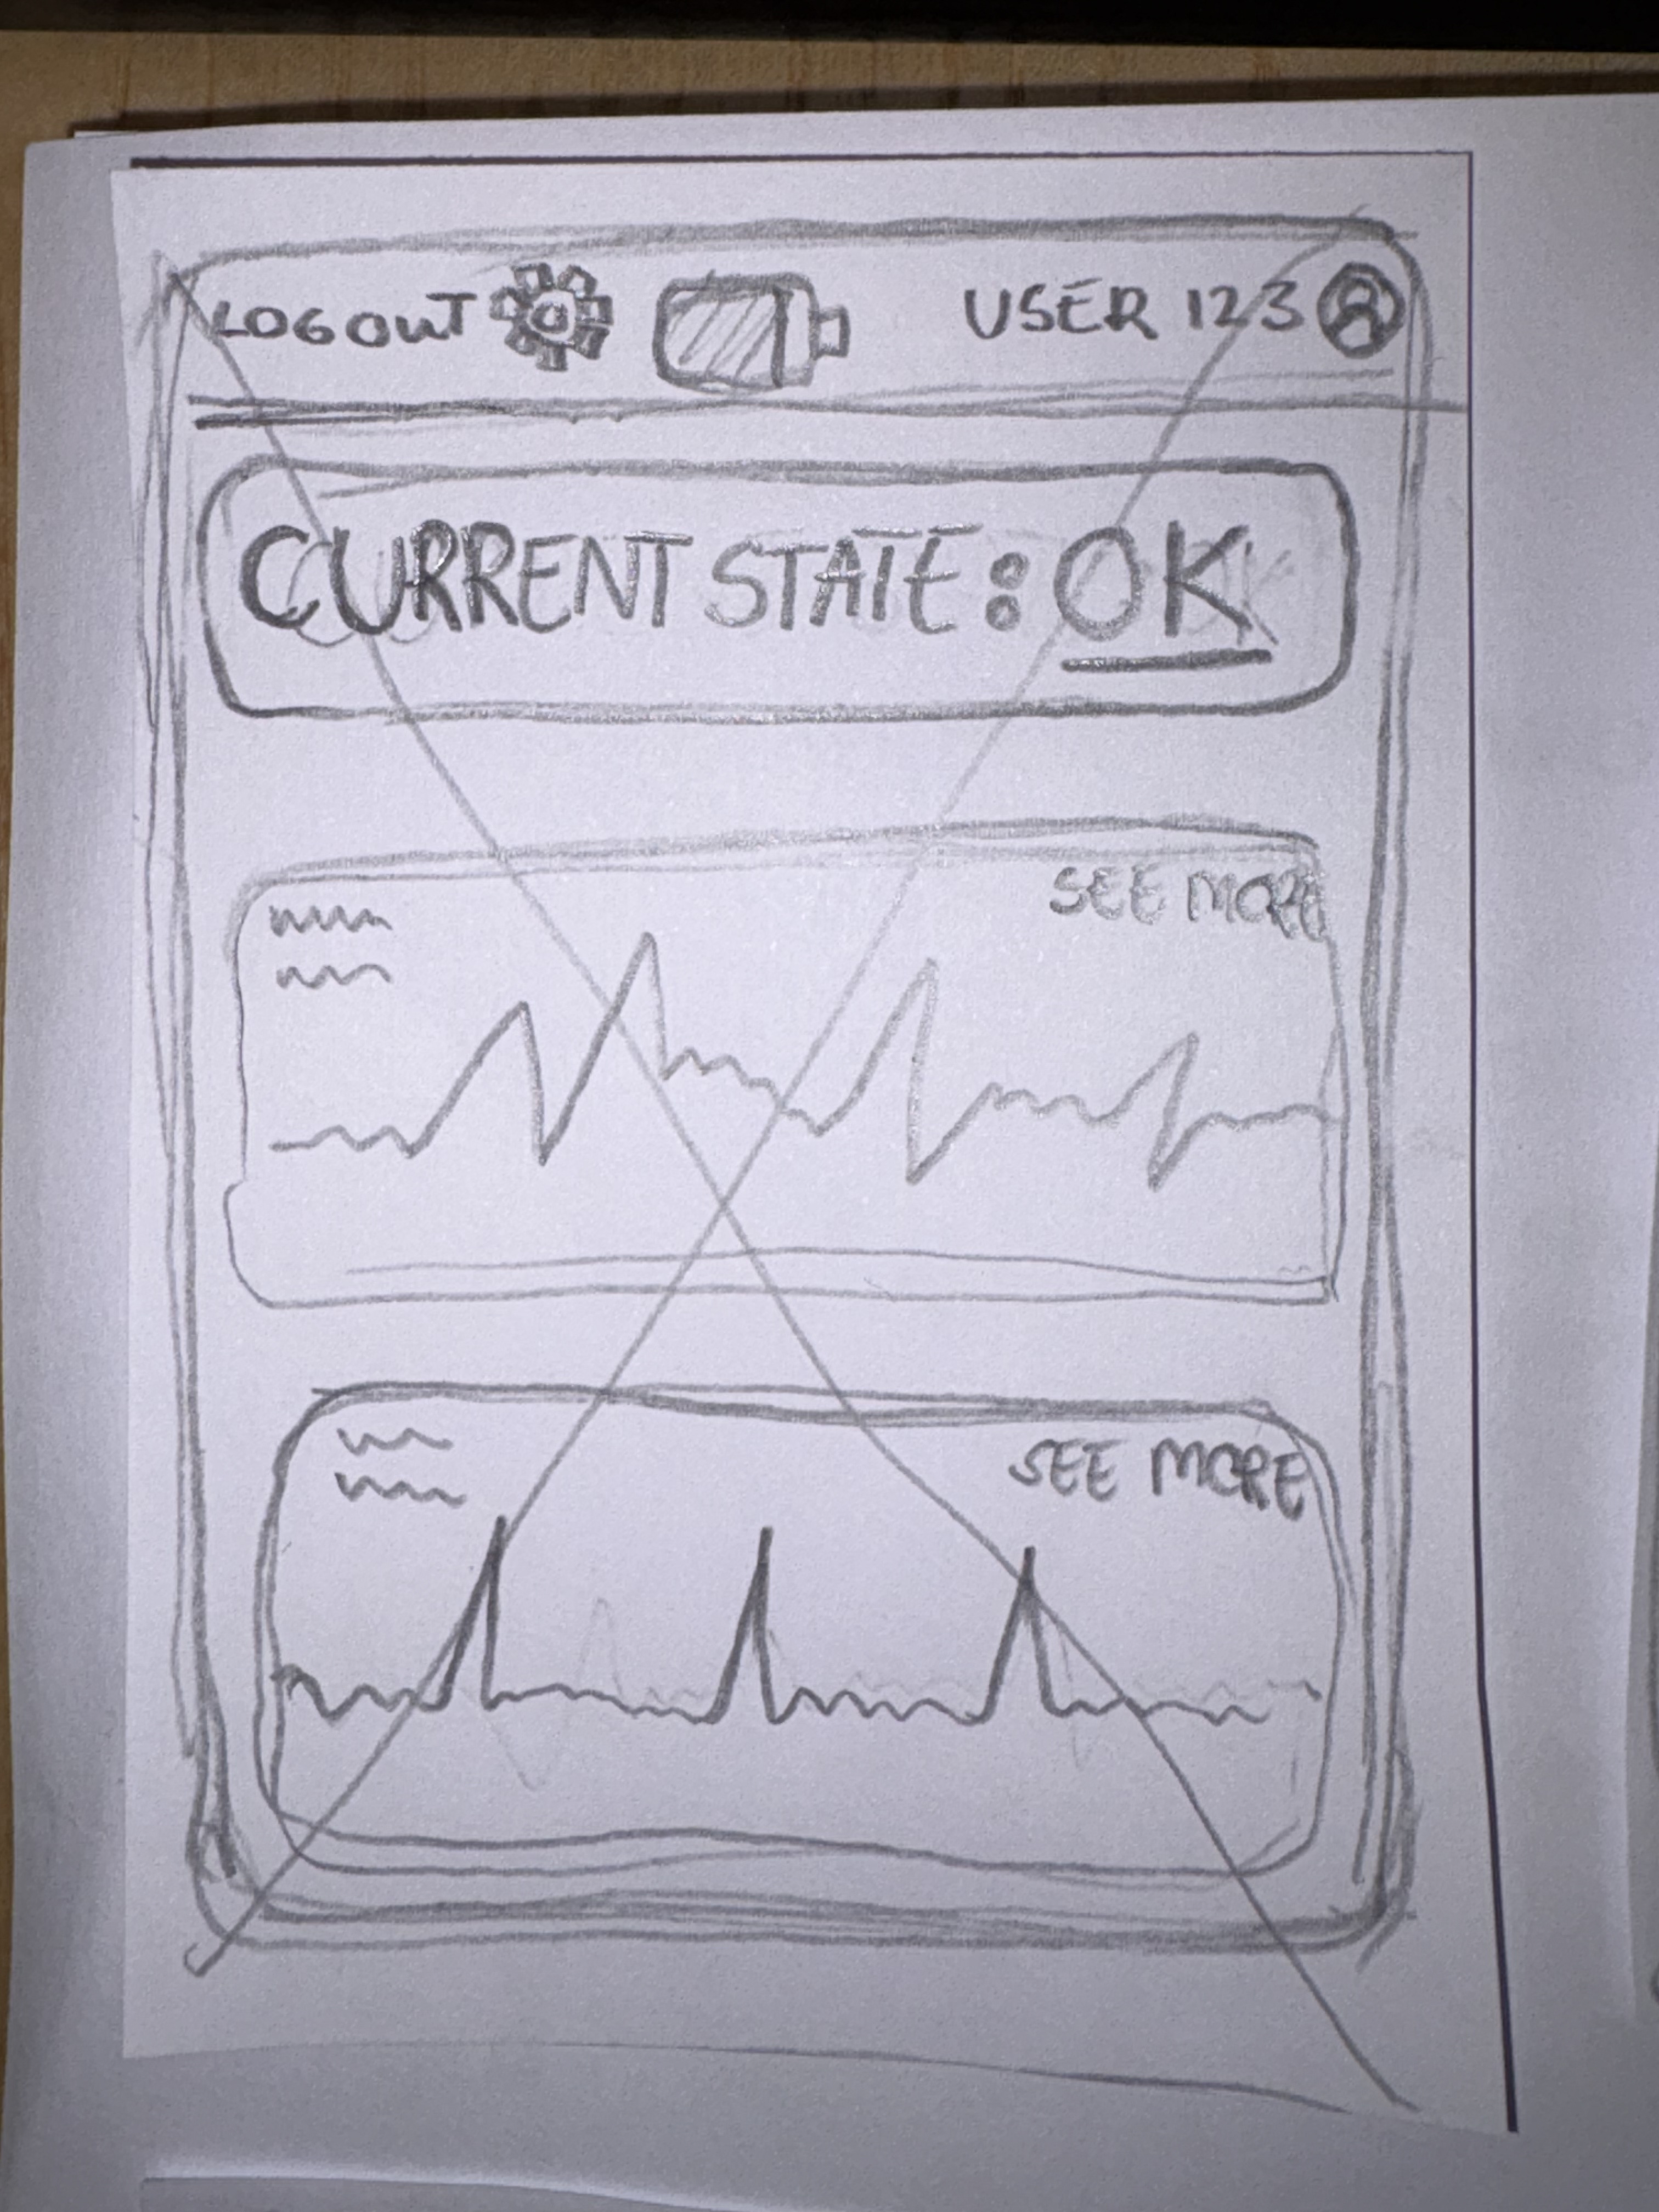 LOGOUT USER 123
CURRENT STATE: OK
SEE MORE
SEE MORE